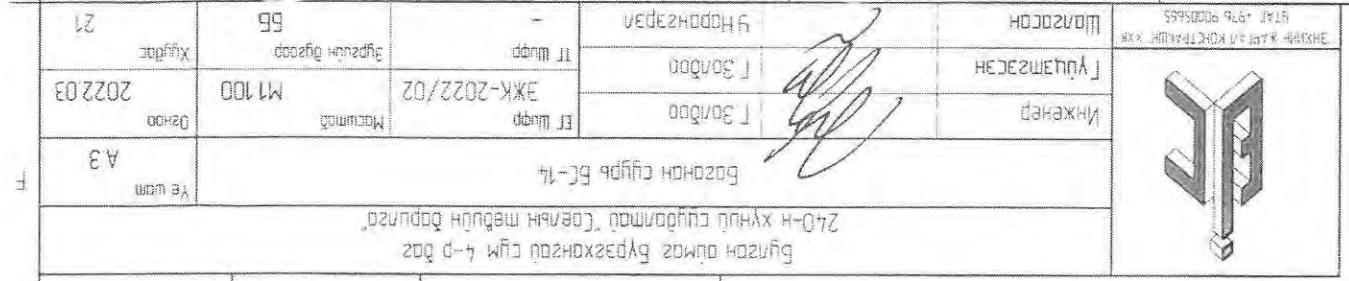 Булган аймаг Бүрэгхангай сум 4-р баг
240-н хүний суудалтай "Соёлын төвийн барилга"
Баганан суурь БС-14
Үе шат
А.З
Инженер
Г.Золбоо
ЕГ Шифр
ЭЖК-2022/02
Масштаб
М1:100
Огноо
2022.03
Гүйцэтгэсэн
Г.Золбоо
Шалгасан
У.Нарангэрэл
ТГ Шифр
-
Зургийн дугаар
ББ
Хуудас
21
ЖАРГАЛ КОНСТРАКШН" ХХК
УТАС: +976 90005665
F